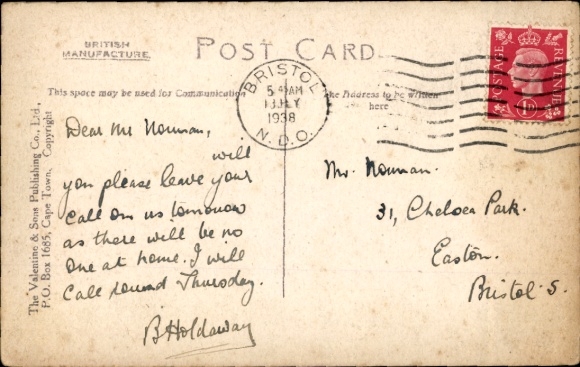 BRITISH
MANUFACTURE.
POST CARD
This space may be used for Communication
The Address to be written
here
The Valentine & Sons Publishing Co., Ltd.,
P.O. Box 1685, Cape Town. Copyright
BRISTOL
1938
N.D.O.
POSTAGE
REVENUE
1D
Dear Mr Norman,
will
you please leave your
call on us tomorrow
as there will be no
one at home. I will
call round Thursday.
B Holdaway
Mr. Norman.
31, Chelsea Park.
Easton.
Bristol. 5.